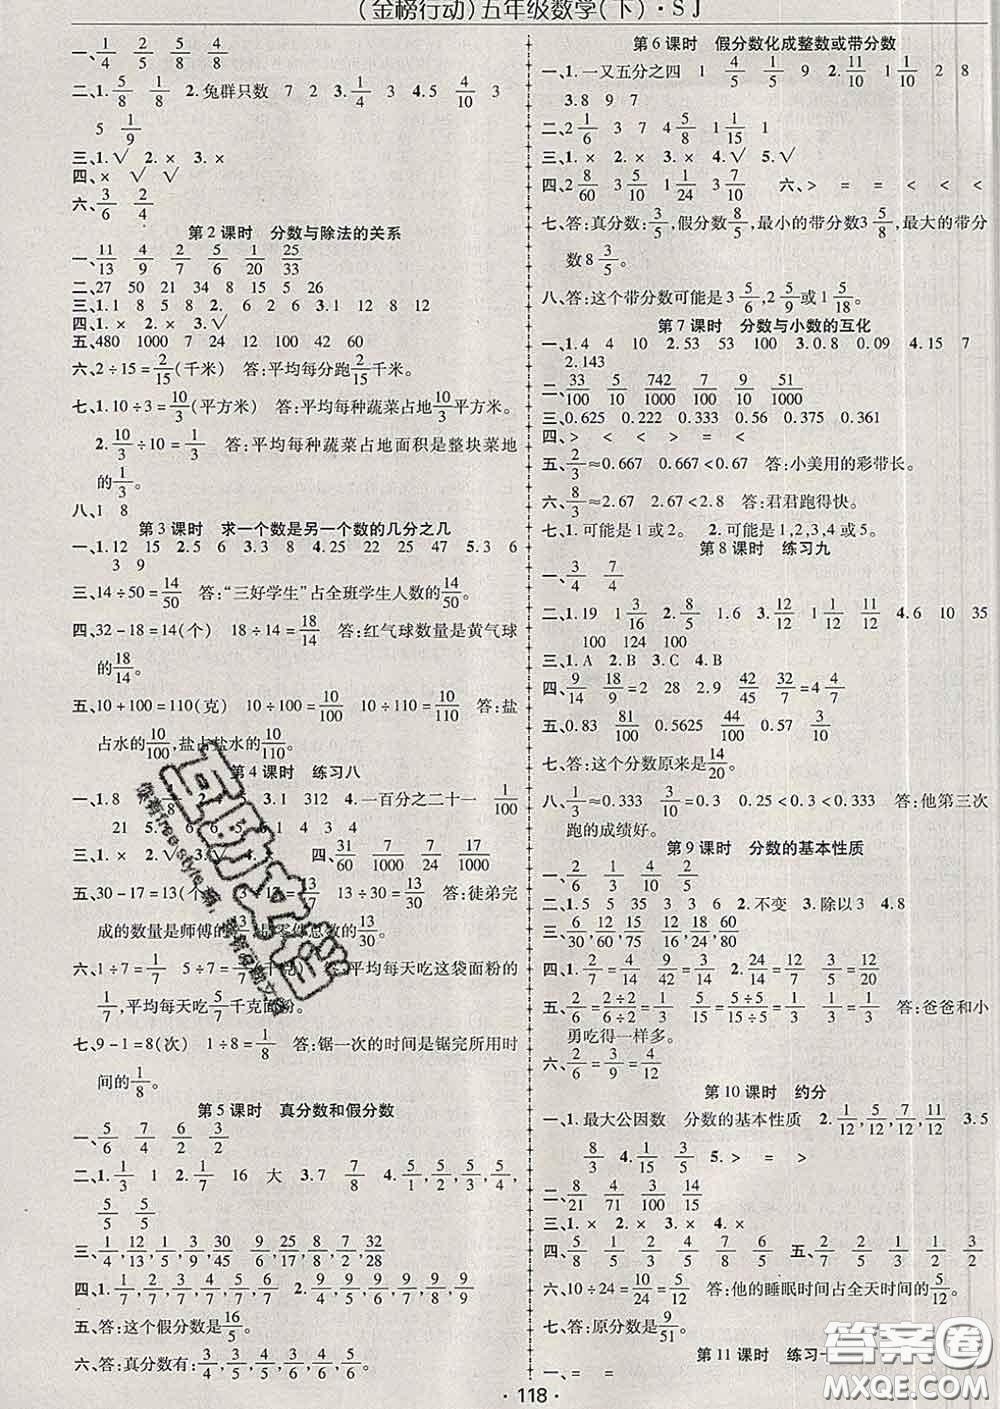 (金榜行动)五年级数学(下)·SJ
一、1/4 5/5 4/8 5/8
二、1. 5/8 1/8 2.兔群只数 7 2 3. 1/4 3 4.5 4/10 3
5 1/9
三、1.√ 2.× 3.×
四、× √ √
六、3/6 2/4
第2课时 分数与除法的关系
一、11/13 4/9 2/7 5/6 1/20 25/33
二、27 50 21 34 8 15 5 26
三、1.1 8 5 8 2.6 2 6 3.8 12 8 12
四、1.× 2.× 3.√
五、480 1000 7 24 12 100 42 60
六、2÷15=2/15(千米) 答:平均每分跑2/15千米。
七、1.10÷3=10/3(平方米) 答:平均每种蔬菜占地10/3平方米。
2. 10/3÷10=1/3 答:平均每种蔬菜占地面积是整块菜地
的1/3。
八、1 8
第3课时 求一个数是另一个数的几分之几
一、1.12 15 2.5 6 3.3 8 4.25 22 25 47 5.3 6
13 3 9
三、14÷50=14/50 答:“三好学生”占全班学生人数的14/50
四、32-18=14(个) 18÷14=18/14 答:红气球数量是黄气球
的18/14。
五、10+100=110(克) 10÷100=10/100 10÷110=10/110 答:盐
占水的10/100,盐占盐水的10/110。
第4课时 练习八
一、1.8 3.1 312 4.一百分之二十一 1/100
21 5.
三、1.× 2.√ 3.√ 四、31/60 7/1000 7/24 17/1000
五、30-17=13( 13/17 13÷30=13/30 答:徒弟完
成的数量是师傅的 零件总数的13/30。
六、1÷7=1/7 5÷7=5/7 平均每天吃这袋面粉的
1/7,平均每天吃5/7千克面粉。
七、9-1=8(次) 1÷8=1/8 答:锯一次的时间是锯完所用时
间的1/8。
第5课时 真分数和假分数
一、5/6 7/4 6/2 3/2
二、1. 1/3 1 2. 1/7 16 大 3.7 8 4. 5/5,5/4,5/3,5/2,5/1,5/4,
5/5 5/5
三、1/4,12/13,1/5,3/9,30/45 9/6,25/18,8/7,7/2,32/28
四、1. 1/7,2/7,3/7,4/7,5/7,6/7 2. 9/9,9/8,9/7,9/6,9/5,9/4,9/3,9/2,9/1
五、答:这个假分数是16/5。
六、答:真分数有:3/4,3/5,4/5,3/7,4/7,5/7。
第6课时 假分数化成整数或带分数
一、1.一又五分之四 1 4/5 1/5 9 2. 11/10 1 1/10 2 8
3.8 9 7
二、2 1/6 3 7 4 5/8 1 1/15 1
三、1.√ 2.× 3.× 4.√ 5.√
四、2 8/60 3 5/10 1 1/24 3 7/10 六、> = = < < <
七、答:真分数:3/5,假分数8/5,最小的带分数3 5/8,最大的带分
数8 3/5。
八、答:这个带分数可能是3 5/6,2 5/9或1 5/18。
第7课时 分数与小数的互化
一、1.4 4 10 2.53 53 100 3.0.8 0.09 4.15 7
2.143
二、33/100 5/10 742/100 7/10 9/10 51/1000
三、0.625 0.222 0.333 0.56 0.375 0.361
四、> < < > = <
五、2/3≈0.667 0.667<0.67 答:小美用的彩带长。
六、8/3≈2.67 2.67<2.8 答:君君跑得快。
七、1.可能是1或2。 2.可能是1,2,3,4或5。
第8课时 练习九
一、3/4 7/4
二、1.19 1 3/16 2. 8/5 1.6 3. 12/12 1 1/12 12/12 4.6 10 35
100 124 100
三、1.A 2.B 3.C 4.B
四、9/14 18/9=2 28 2.9 42/45 32/7=4 4/7
五、0.83 81/100 0.5625 44/100 0.57 3/10
七、答:这个分数原来是14/20。
八、1/3≈0.333 3/10=0.3 0.25<0.3<0.333 答:他第三次
跑的成绩好。
第9课时 分数的基本性质
一、2/6 1/3 4/5 8/10
二、1.5 5 35 3 3 6 2.不变 3.除以3 4.8
三、6/30,30/60,12/75,15/60 4/16,18/24,24/18,16/80
四、1. 2/7=4/14 9/30 4/12 2. 24/14=12/7 8/12=2/3
五、2/6=2÷2/6÷2=1/3 5/15=5÷5/15÷5=1/3 1/3=1/3 答:爸爸和小
勇吃得一样多。
六、2/6=3/9=4/12
第10课时 约分
一、1.最大公因数 分数的基本性质 2. 1/12,5/12,7/12,11/12 3.5
8/3 4. 1/15 5.> = =
二、8/21 4/71 3/100 15/14
三、1.× 2.× 3.× 4.×
四、5/8 1/5 2/8 4/5 7/8 6/5 五、1/2 1/2 1/2 3/2
六、10÷24=10/24=5/12 答:他的睡眠时间占全天时间的5/12。
七、答:原分数是9/51。
第11课时 练习十
一、= =
·118·
答案圈
MXQE.COM